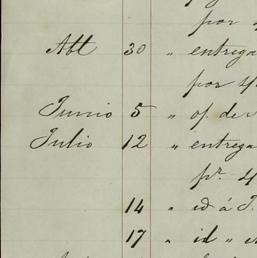 por
Abl 30 " entrega
por 4
Junio 5 " of. de
Julio 12 " entrega
pr. 4
14 " id á J.
17 " id "